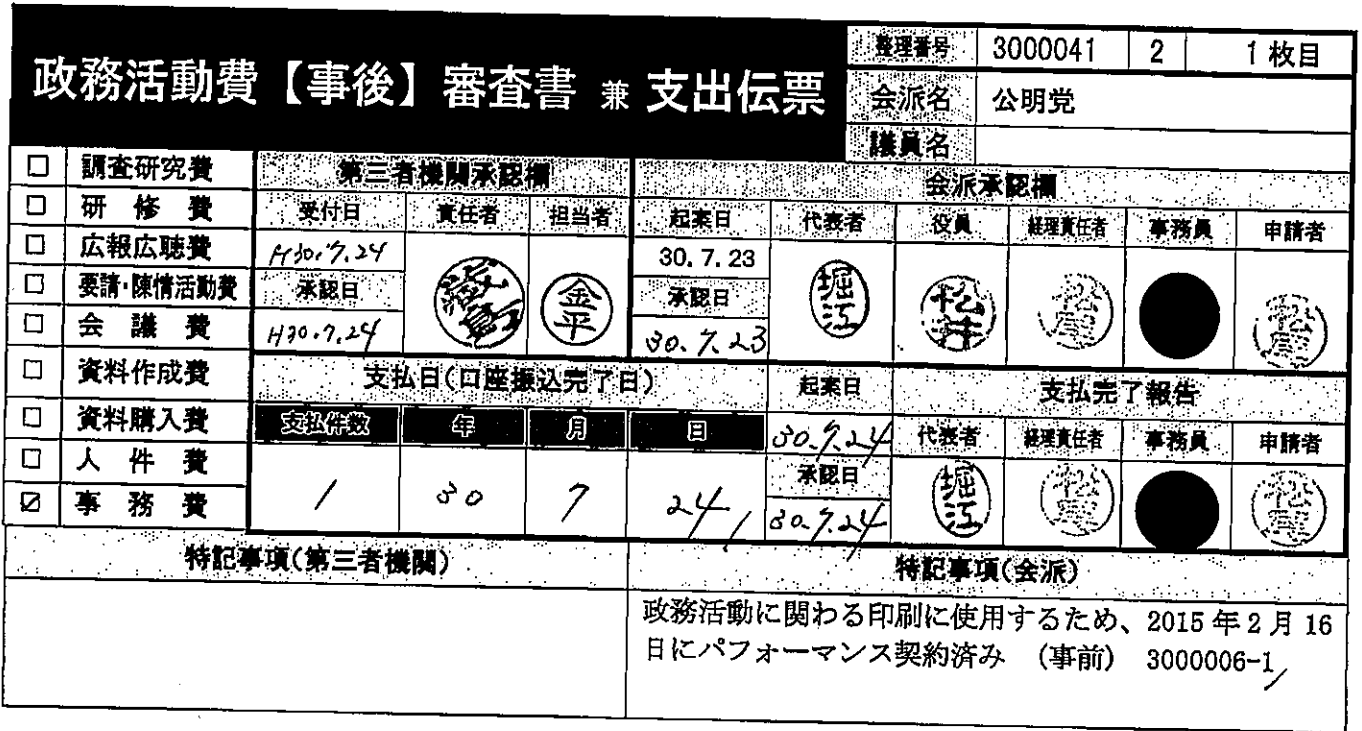 政務活動費【事後】審査書 兼 支出伝票
整理番号 3000041 2 1枚目
会派名 公明党
議員名
□ 調査研究費
□ 研修費
□ 広報広聴費
□ 要請・陳情活動費
□ 会議費
□ 資料作成費
□ 資料購入費
□ 人件費
☑ 事務費
第三者機関承認欄
受付日 責任者 担当者
H30.7.24
承認日
H30.7.24
飯島 金平
会派承認欄
起案日 代表者 役員 経理責任者 事務員 申請者
30.7.23
承認日
30.7.23
堀江 松井
支払日(口座振込完了日)
支払件数 年 月 日
1 30 7 24
起案日
30.7.24
承認日
30.7.24
支払完了報告
代表者 経理責任者 事務員 申請者
堀江
特記事項(第三者機関)
特記事項(会派)
政務活動に関わる印刷に使用するため、2015年2月16
日にパフォーマンス契約済み (事前) 3000006-1